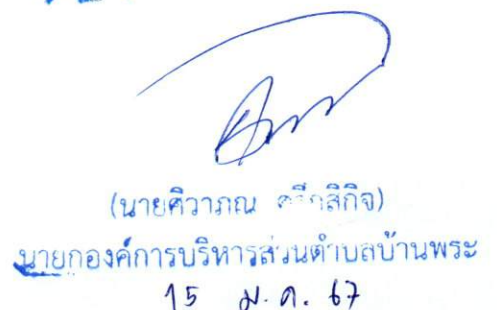 (นายศิวาภณ
นายกองค์การบริหารส่วนตำบลบ้านพระ
15 ม.ค. 67